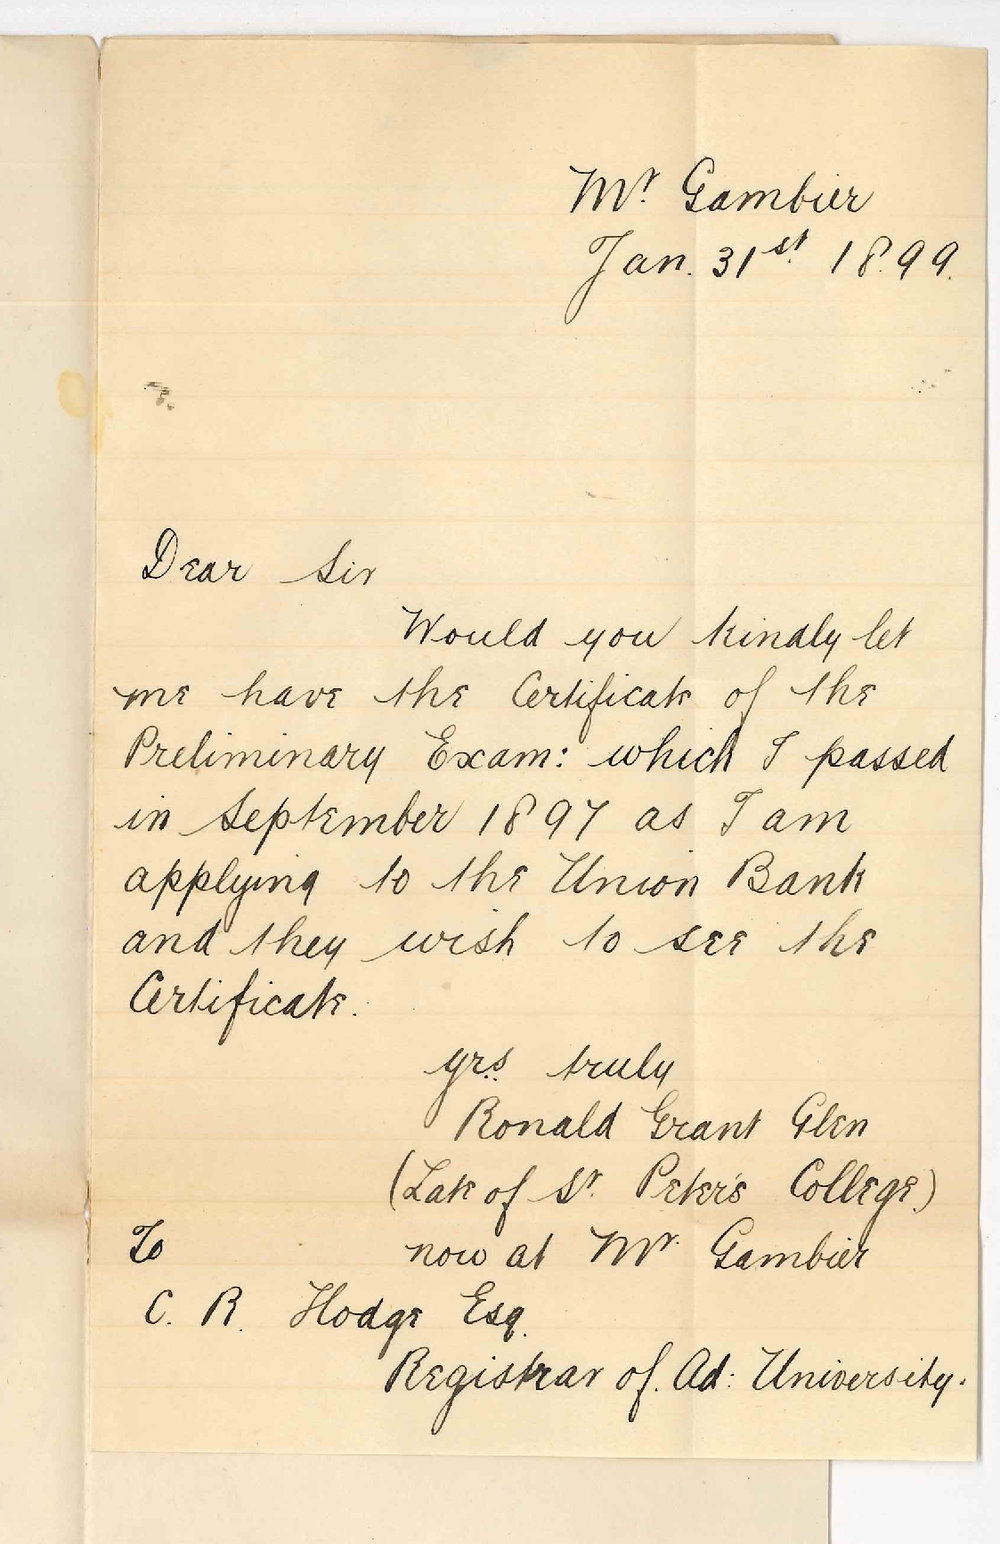 Mt. Gambier
Jan. 31st. 1899.
Dear Sir
Would you kindly let
me have the Certificate of the
Preliminary Exam: which I passed
in September 1897 as I am
applying to the Union Bank
and they wish to see the
Certificate.
yrs. truly
Ronald Grant Glen
(Late of St. Peter's College)
To now at Mt. Gambier
C. R. Hodge Esq.
Registrar of Ad: University.